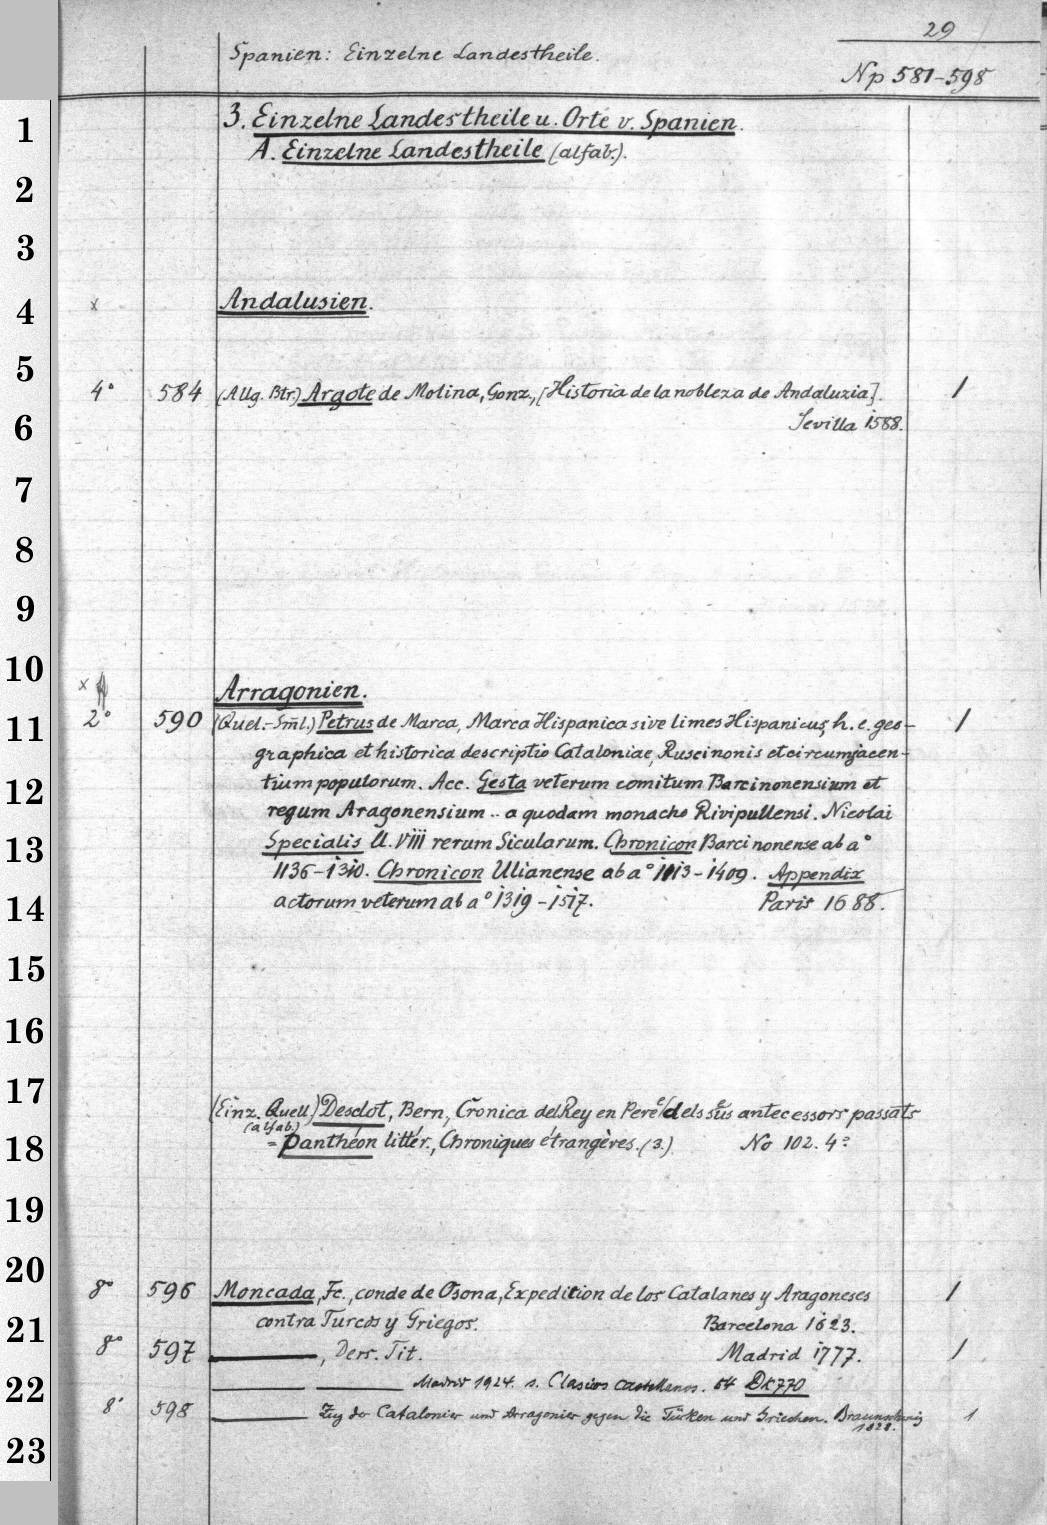 29
Spanien: Einzelne Landestheile.
Np 581-598
1 3. Einzelne Landestheile u. Orte v. Spanien.
A. Einzelne Landestheile (alfab.).
2
3
4 x Andalusien.
5
4° 584 (Allg. Btr.) Argote de Molina, Gonz., [Historia de la nobleza de Andaluzia]. 1
6 Sevilla 1588.
7
8
9
10
x Arragonien.
11 2° 590 (Quel.-Sm̄l.) Petrus de Marca, Marca Hispanica sive limes Hispanicus, h. e. geo- 1
graphica et historica descriptio Cataloniae, Ruscinonis et circumjacen-
12 tium populorum. Acc. Gesta veterum comitum Barcinonensium et
regum Aragonensium .. a quodam monacho Rivipullensi. Nicolai
13 Specialis ll. VIII rerum Sicularum. Chronicon Barcinonense ab a°
1136-1310. Chronicon Ulianense ab a° 1113-1409. Appendix
14 actorum veterum ab a° 1319-1517. Paris 1688.
15
16
17
(Einz. Quell) Desclot, Bern., Cronica del Rey en Pere e dels seus antecessors passats
(alfab.)
18 = Panthéon littér., Chroniques étrangères. (3.) No 102. 4°
19
20
8° 596 Moncada, Fc., conde de Osona, Expedition de los Catalanes y Aragoneses 1
21 contra Turcos y Griegos. Barcelona 1623.
8° 597 ———, Ders. Tit. Madrid 1777. 1
22 ——— ——— Madrid 1924. s. Clasicos castellanos. 54 Dk 770
8° 598 ——— Zug der Catalonier und Arragonier gegen die Türken und Griechen. Braunschweig 1
1828.
23